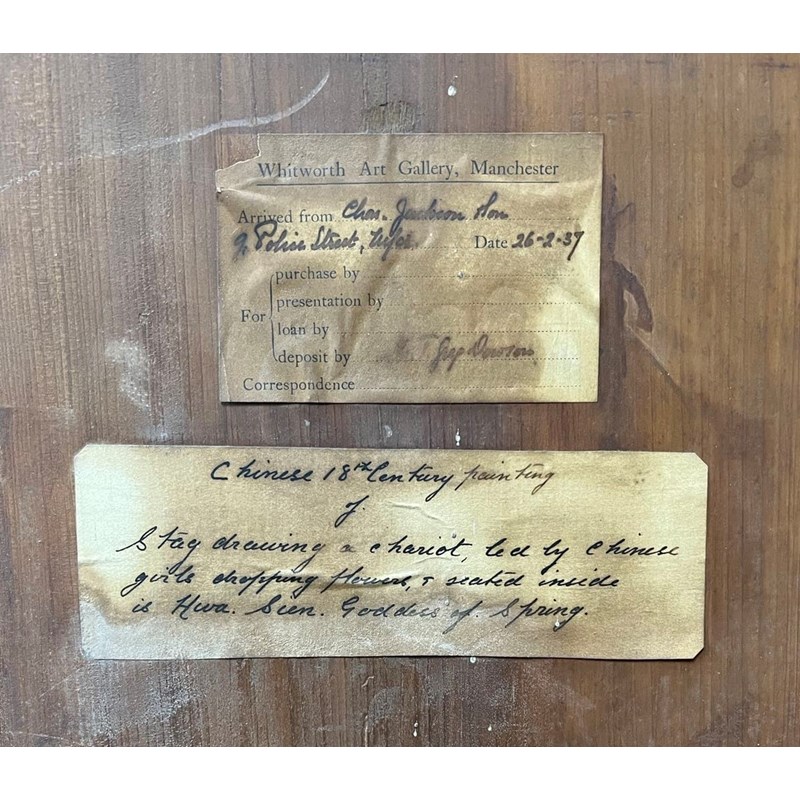 Whitworth Art Gallery, Manchester
Arrived from Chas. Jackson Son
9, Police Street, M/cr. Date 26-2-37
purchase by
presentation by
For
loan by
deposit by
Correspondence
Chinese 18th Century painting
of
Stag drawing a chariot, led by Chinese
girls dropping flowers, & seated inside
is Hwa. Sien. Goddess of Spring.